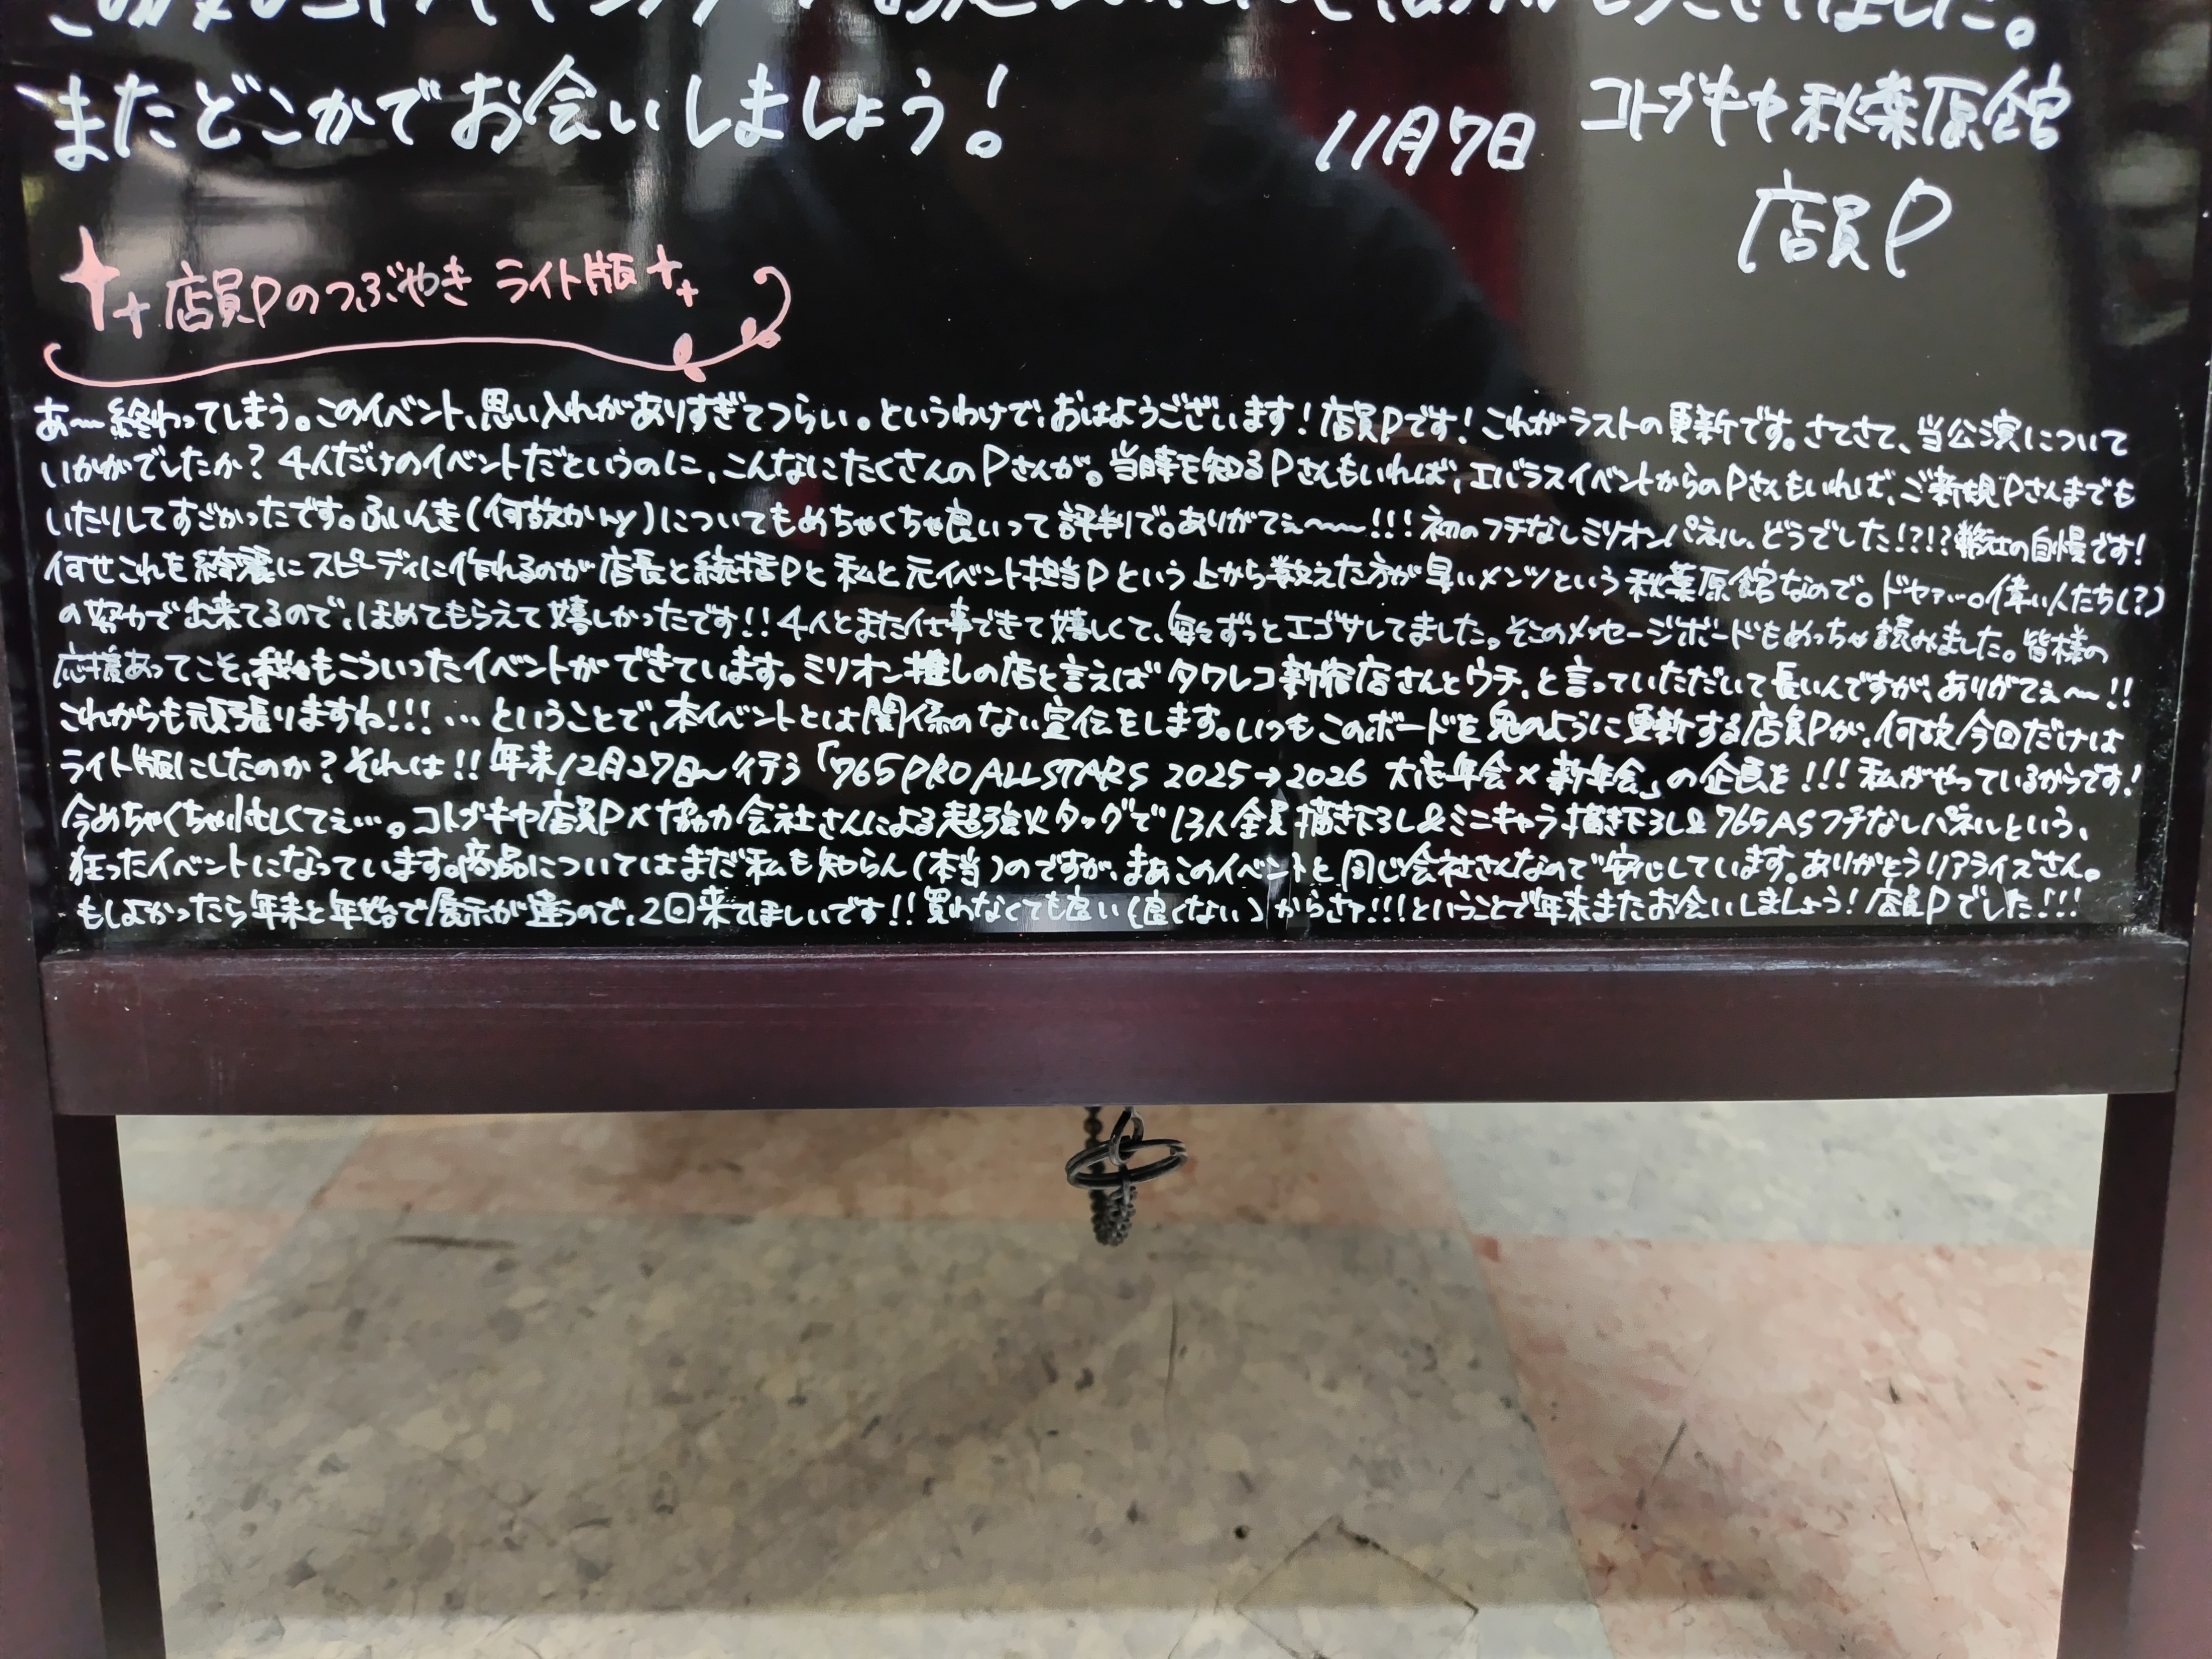 またどこかでお会いしましょう!
11月7日 コトブキヤ秋葉原館
店員P
店員Pのつぶやき ライト版
あ〜終わってしまう。このイベント、思い入れがありすぎてつらい。というわけで、おはようございます!店員Pです!これがラストの更新です。さてさて、当公演について
いかがでしたか?4人だけのイベントだというのに、こんなにたくさんのPさんが。当時を知るPさんもいれば、エバラスイベントからのPさんもいれば、ご新規Pさんまでも
いたりしてすごかったです。ふいんき(何故かry)についてもめちゃくちゃ良いって評判で。ありがてぇ〜〜!!!初のフチなしミリオンパネル、どうでした!?!?弊社の自慢です!
何せこれを綺麗にスピーディに作れるのが店長と統括Pと私と元イベント担当Pという上から数えた方が早いメンツという秋葉原館なので。ドヤァ…。偉い人たち(?)
の努力で出来てるので、ほめてもらえて嬉しかったです!!4人とまた仕事できて嬉しくて、毎々ずっとエゴサしてました。そこのメッセージボードもめっちゃ読みました。皆様の
応援あってこそ、私もこういったイベントができています。ミリオン推しの店と言えばタワレコ新宿店さんとウチ、と言っていただいて長いんですが、ありがてぇ〜!!
これからも頑張りますね!!!…ということで、本イベントとは関係のない宣伝をします。いつもこのボードを鬼のように更新する店員Pが、何故今回だけは
ライト版にしたのか?それは!!年末12月27日〜行う「765PRO ALLSTARS 2025→2026 大忘年会×新年会」の企画を!!!私がやっているからです!
今めちゃくちゃ忙しくてぇ…。コトブキヤ店員P×協力会社さんによる超強火タッグで13人全員描き下ろし&ミニキャラ描き下ろし&765ASフチなしパネルという、
狂ったイベントになっています。商品についてはまだ私も知らん(本当)のですが、まあこのイベントと同じ会社さんなので安心しています。ありがとうリアライズさん。
もしよかったら年末と年始で展示が違うので、2回来てほしいです!!買わなくても良い(良くない)からさァ!!!ということで年末またお会いしましょう!店員Pでした!!!